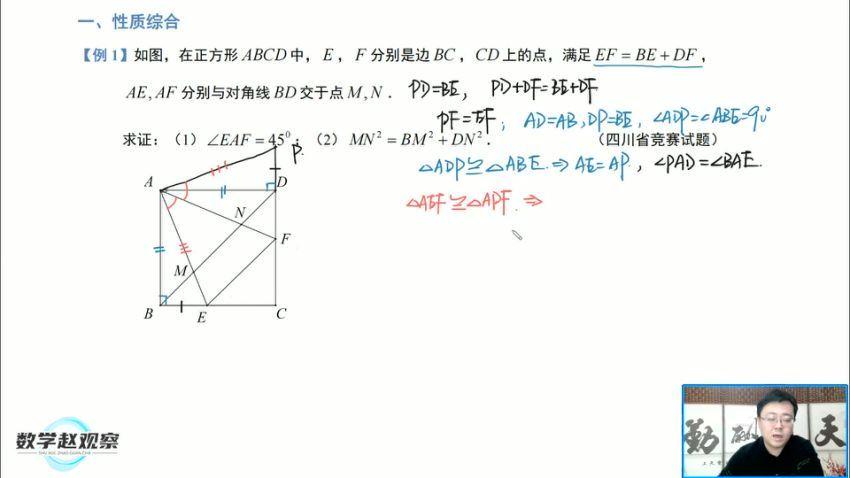 一、性质综合
【例1】如图，在正方形 ABCD 中，E，F 分别是边 BC，CD 上的点，满足 EF = BE + DF，
AE, AF 分别与对角线 BD 交于点 M, N． PD=BE， PD+DF=BE+DF
PF=EF； AD=AB, DP=BE， ∠ADP=∠ABE=90°
求证：（1）∠EAF = 45⁰；（2）MN² = BM² + DN²． （四川省竞赛试题）
△ADP≌△ABE. ⇒ AE=AP， ∠PAD=∠BAE.
△AEF≌△APF. ⇒
P.
A
D
N
F
M
B
E
C
数学赵观察
SHU XUE ZHAO GUAN CHA
勤
天